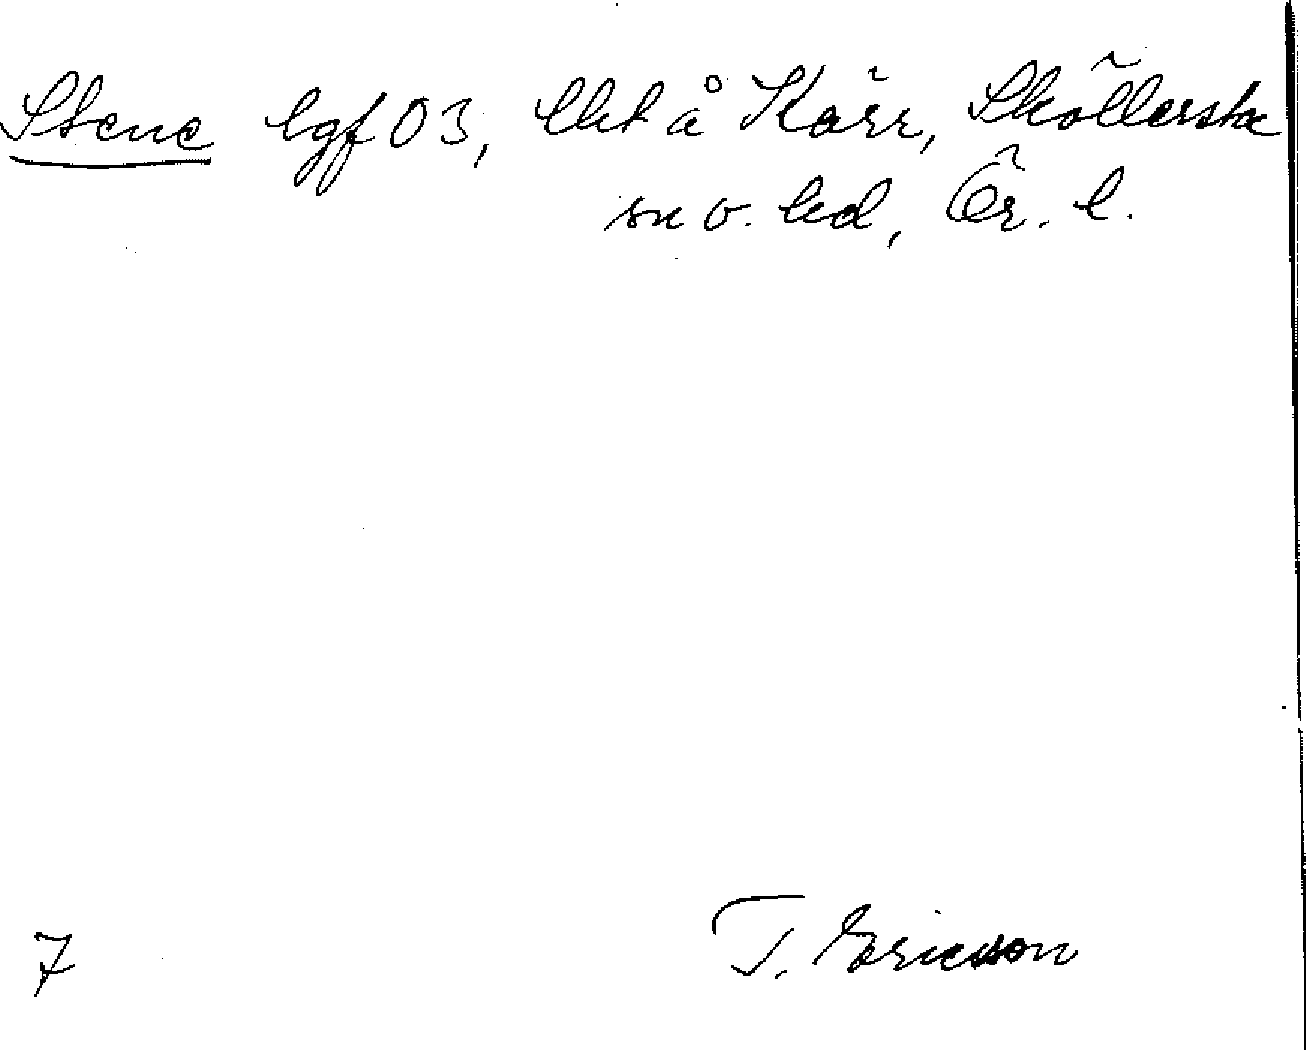 Stene lgf 03, tlkt å Kärr, Sköllersta
sn o. hd, Ör. l.
T. Ericsson
7